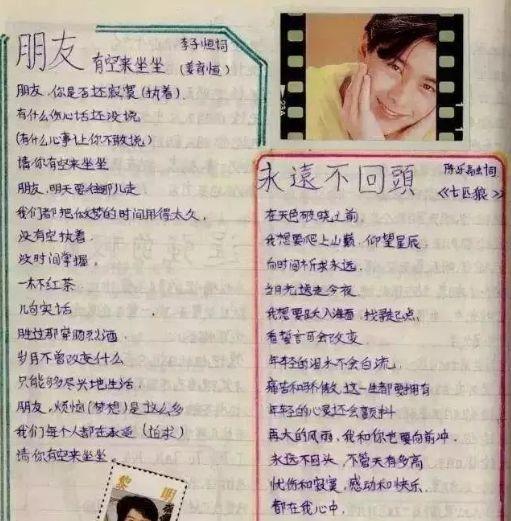 朋友
有空来坐坐
李子恒词
(姜育恒)
朋友,你是否还寂寞(执着)
有什么伤心话还没说
(有什么心事让你不敢说)
请你有空来坐坐
朋友,明天要往哪儿走
我们都把做梦的时间用得太久,
没有空执着.
没时间掌握.
一杯红茶
几句实话
胜过那穿肠烈酒.
岁月不曾改变什么
只能够尽兴地生活.
朋友,烦恼(梦想)是这么多
我们每个人都在承受(追求)
请你有空来坐坐.
黎明
永遠不回頭
陈乐融词
《七匹狼》
在天色破晓之前,
我想要爬上山巅,仰望星辰
向时间祈求永远.
当月光送走今夜
我想要跃入海面,找寻起点,
看誓言可会改变.
年轻的泪水不会白流,
痛苦和骄傲,这一生都要拥有
年轻的心灵还会颤抖
再大的风雨,我和你也要向前冲.
永远不回头,不管天有多高
忧伤和寂寞,感动和快乐,
都在我心中.